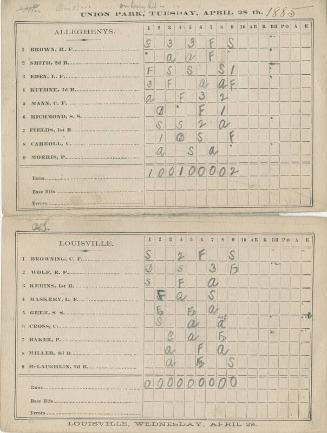 UNION PARK, TUESDAY, APRIL 28th. 1885
ALLEGHENYS. 1 2 3 4 5 6 7 8 9 10 AB R BH PO A E
1 BROWN, R. F. S 3 3 F S
2 SMITH, 2d B. a a F
3 EDEN, L. F. F S S S 1
4 KUEHNE, 3d B. 3 F a a F
5 MANN, C. F. a F 3 2
6 RICHMOND, S. S. F 1
7 FIELDS, 1st B. S S 2 a
8 CARROLL, C. 1 S F
9 MORRIS, P. a S a
Runs 1 0 0 1 0 0 0 0 2
Base Hits
Errors
LOUISVILLE. 1 2 3 4 5 6 7 8 9 10 AB R BH PO A E
1 BROWNING, C. F. S 2 F S
2 WOLF, R. F. S 3
3 KERINS, 1st B. S F a
4 MASKERY, L. F. F a S
5 GEER, S. S. a
6 CROSS, C. S a a
7 BAKER, P. a
8 MILLER, 3d B. a F a
9 McLAUGHLIN, 2d B. a S
Runs 0 0 0 0 0 0 0 0 0
Base Hits
Errors
LOUISVILLE, WEDNESDAY, APRIL 29.